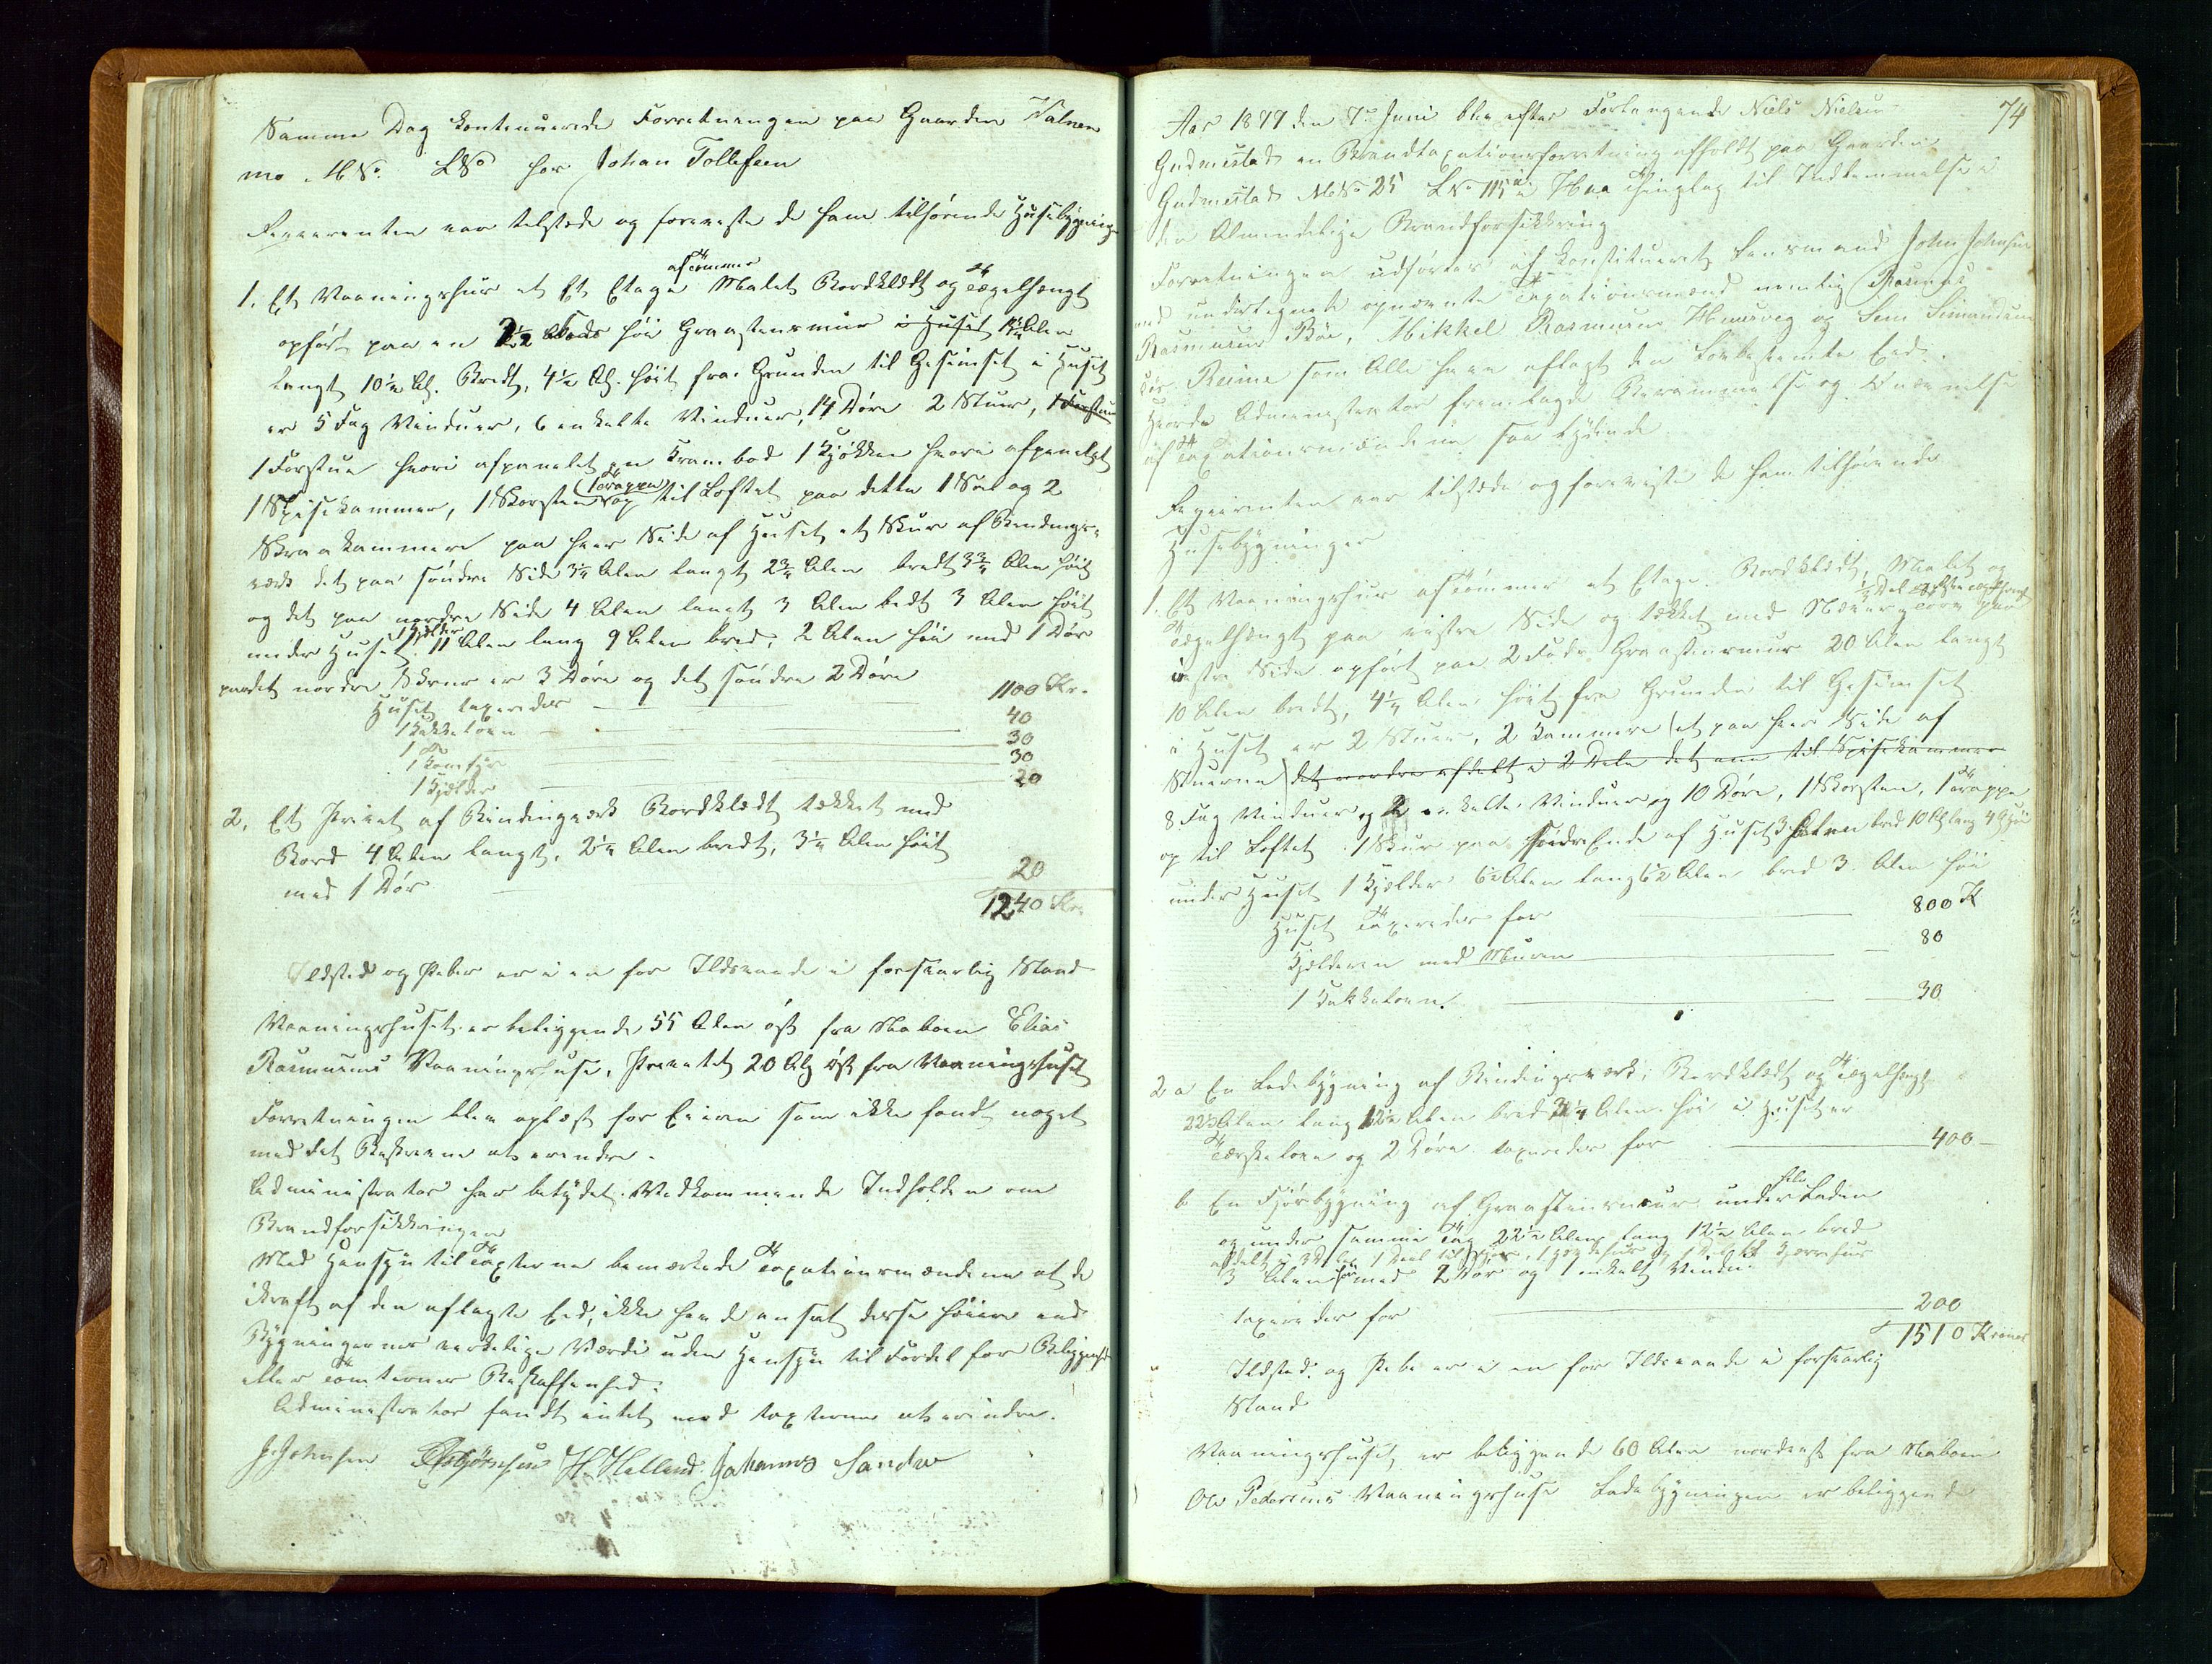 Samme Dag kontinuerede Forretningen paa Gaarden Kalnes
mo M No. LNo hos Johan Tollefsen
Reqvirenten var tilstede og foreviste de ham tilhørende Husebygninger
1. Et Vaaningshus et Et Etage af Tømmer Malet Bordklædt og Tægelhængt
opført paa en 2½ Fods høi Graastensmuur Huset Alen
langt 10½ Al. Bredt, 4½ Al. høit fra Grunden til Gesimset i Huset
er 5 Fag Vinduer, 6 enkelte Vinduer, 14 Døre 2 Stuer,
1 Forstue hvori afpanelet en Krambod 1 Kjøkken hvori afpanelet
1 Spisekammer, 1 Skorsten (1 Trappe) op til Loftet paa dette 1 Sal og 2
Skraakammere paa hver Side af Huset et Skur af Bindings-
værk det paa søndre Side 3¼ Alen langt 2¾ Alen bredt 3¾ Alen høit
og det paa nordre Side 4 Alen langt 3 Alen bredt 3 Alen høit
under Huset 1 Kjelder 11 Alen lang 9 Alen bred, 2 Alen høi med 1 Dør
paa det nordre Skuur er 3 Døre og det søndre 2 Døre
Huset taxeredes 1100 Kr.
1 Kakkeloen 40
1 Do 30
1 Komfyr 30
1 Kjelder 20
2. Et Privet af Bindingværk Bordklædt tækket med
Bord 4 Alen langt, 2½ Alen bredt, 3½ Alen høit
med 1 Dør 20
1240 Kr.
Ildsted og Piber er i en for Ildsvaade i forsvarlig Stand
Vaaningshuset er beliggende 55 Alen øst fra Naboen Elias
Rasmusens Vaaningshuse, Privetet 20 Al øst fra Vaaningshuset
Forretningen blev oplæst for Eieren som ikke fandt noget
med det Beskrevne at erindre.
Administrator har betydet Vedkommende Indholden om
Brandforsikkringen
Med Hensyn til Taxterne bemærkede Taxationsmændene at de
i Kraft af den aflagte Eed, ikke havde ansat disse høiere end
Bygningernes verkelige Værdi uden Hensyn til Fordel for Beliggenhed
eller Tomternes Beskaffenhed.
Administrator fandt intet med taxterne at erindre.
J. Johnsen H. Helland Johannes Sandve
74
Aar 1877 den 7de Juni blev efter Forlangende Niels Nielsen
Gudmestad en Brandtaxationsforretning afholdt paa Gaarden
Gudmestad M No 25 L No 115 a i Haa Thinglag til Indlemmelse i
den Almindelige Brandforsikkring
Forretningen udførtes af konstitueret Lensmand John Johnsen
med undertegnede opnævnte Taxationsmænd nemlig Rasmus
Rasmusen Bøe, Mikkel Rasmusen og Sem Simondsen
Reime som Alle have aflagt den Forbestemte Eed.
Administrator fremlagde Berammelse og Udnævnelse
af Taxationsmændene saa lydende
Reqvirenten var tilstede og foreviste de ham tilhørende
Husebygninger
1. Et Vaaningshus af Tømmer et Etage Bordklædt, Malet og
Tægelhængt paa vestre Side og tækket med Næver og Torv paa
østre Side opført paa 2 Fods Graastensmuur 20 Alen langt
10 Alen bredt, 4½ Alen høit fra Grunden til Gesimset
i Huset er 2 Stuer, 2 Kammere (et paa hver Side af
Stuerne) det nordre afdelt i 2 Dele det ene til Spisekammer
8 Fag Vinduer og 2 enkelte Vinduer og 10 Døre, 1 Skorsten, 1 Trappe
op til Loftet 1 Skuur paa søndre Ende af Huset 3 Alen bred 10 Al lang 4 Al høi
under Huset 1 Kjelder 6½ Alen lang 6½ Alen bred 3 Alen høi
Huset Taxeredes for 800 Kr
Kjelderen med Muren 80
1 Kakkeloen 30
2 a En Ladebygning af Bindingsværk, Bordklædt og Tægelhængt
22½ Alen lang 12½ Alen bred 3¼ Alen høi i Huset er
Tærskeloen og 2 Døre taxeredes for 400
b En Fjøsbygning af Graastensmuur under hele Laden
og under samme Tag 22½ Alen lang 12½ Alen bred
3 Alen høi med 2 Dør og 1 enkelt Vindue
taxeredes for 200
1510 Kroner
Ildsted og Pibe er i en for Ildsvaade i forsvarlig
Stand
Vaaningshuset er beliggende 60 Alen nordøst fra Naboen
Ole Pedersens Vaaningshuse Ladebygningen er beliggende